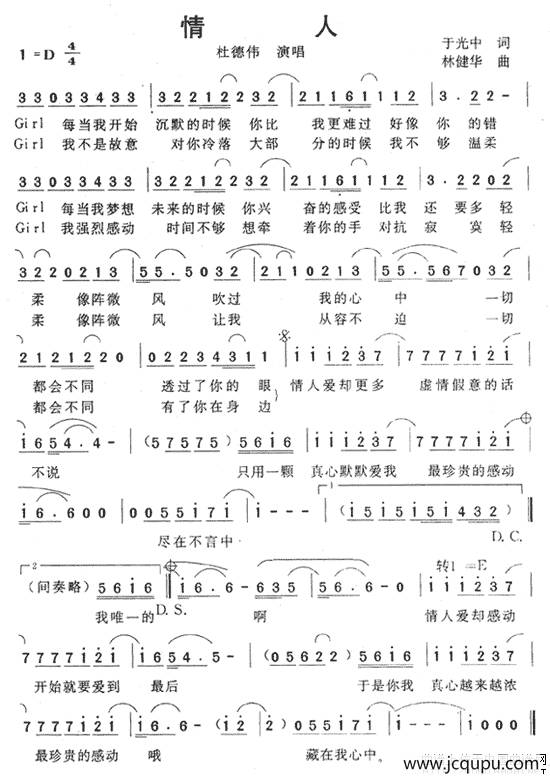 情 人
1=D 4/4
杜德伟 演唱
于光中 词
林健华 曲
33033433 32212232 21161112 3.22-
Girl 每当我开始 沉默的时候 你比 我更难过 好像 你 的错
Girl 我不是故意 对你冷落 大部 分的时候 我不 够 温柔
33033433 32212232 21161112 3.2202
Girl 每当我梦想 未来的时候 你兴 奋的感受 比我 还 要多 轻
Girl 我强烈感动 时间不够 想牵 着你的手 对抗 寂 寞 轻
3220213 55.5032 2110213 55.567032
柔 像阵微 风 吹过 我的心 中 一切
柔 像阵微 风 让我 从容不 迫 一切
21212220 02234311 111237 7777121
都会不同 透过了你的 眼 情人爱却更多 虚情假意的话
都会不同 有了你在身 边
1654.4- (57575) 5616 111237 7777121
不说 只用一颗 真心默默爱我 最珍贵的感动
16.600 0055171 1--- (15151 51432)
尽在不言中
D.C.
(间奏略) 5616 16.6- 635 56.6-0 111237
我唯一的 D.S. 啊 情人爱却感动
转1=E
7777121 1654.5- (05622) 5616 111237
开始就要爱到 最后 于是你我 真心越来越浓
7777121 16.6- (02122) 055171 1--- 1000
最珍贵的感动 哦 藏在我心中。
www.jcqupu.com